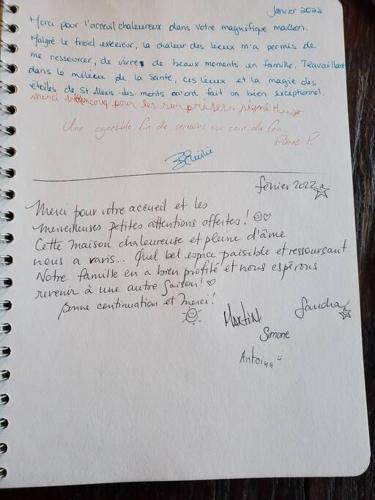 Janvier 2022
Merci pour l'acceuil chaleureux dans votre magnifique maison.
Malgré le froid extérieur, la chaleur des lieux m'a permis de
me ressourcer, de vivre de beaux moments en famille. Travaillant
dans le milieu de la santé, ces lieux et la magie des
étoiles de St-Alexis-des-monts m'ont fait un bien exceptionnel.
merci beaucoup pour les
Une agréable fin de semaine au coin du feu
février 2022
Merci pour votre accueil et les
merveilleuses petites attentions offertes!
Cette maison chaleureuse et pleine d'âme
nous a ravis... Quel bel espace paisible et ressourçant
Notre famille en a bien profité et nous espérons
revenir à une autre saison!
bonne continuation et merci!
Martin Sandra
Simone
Antoine